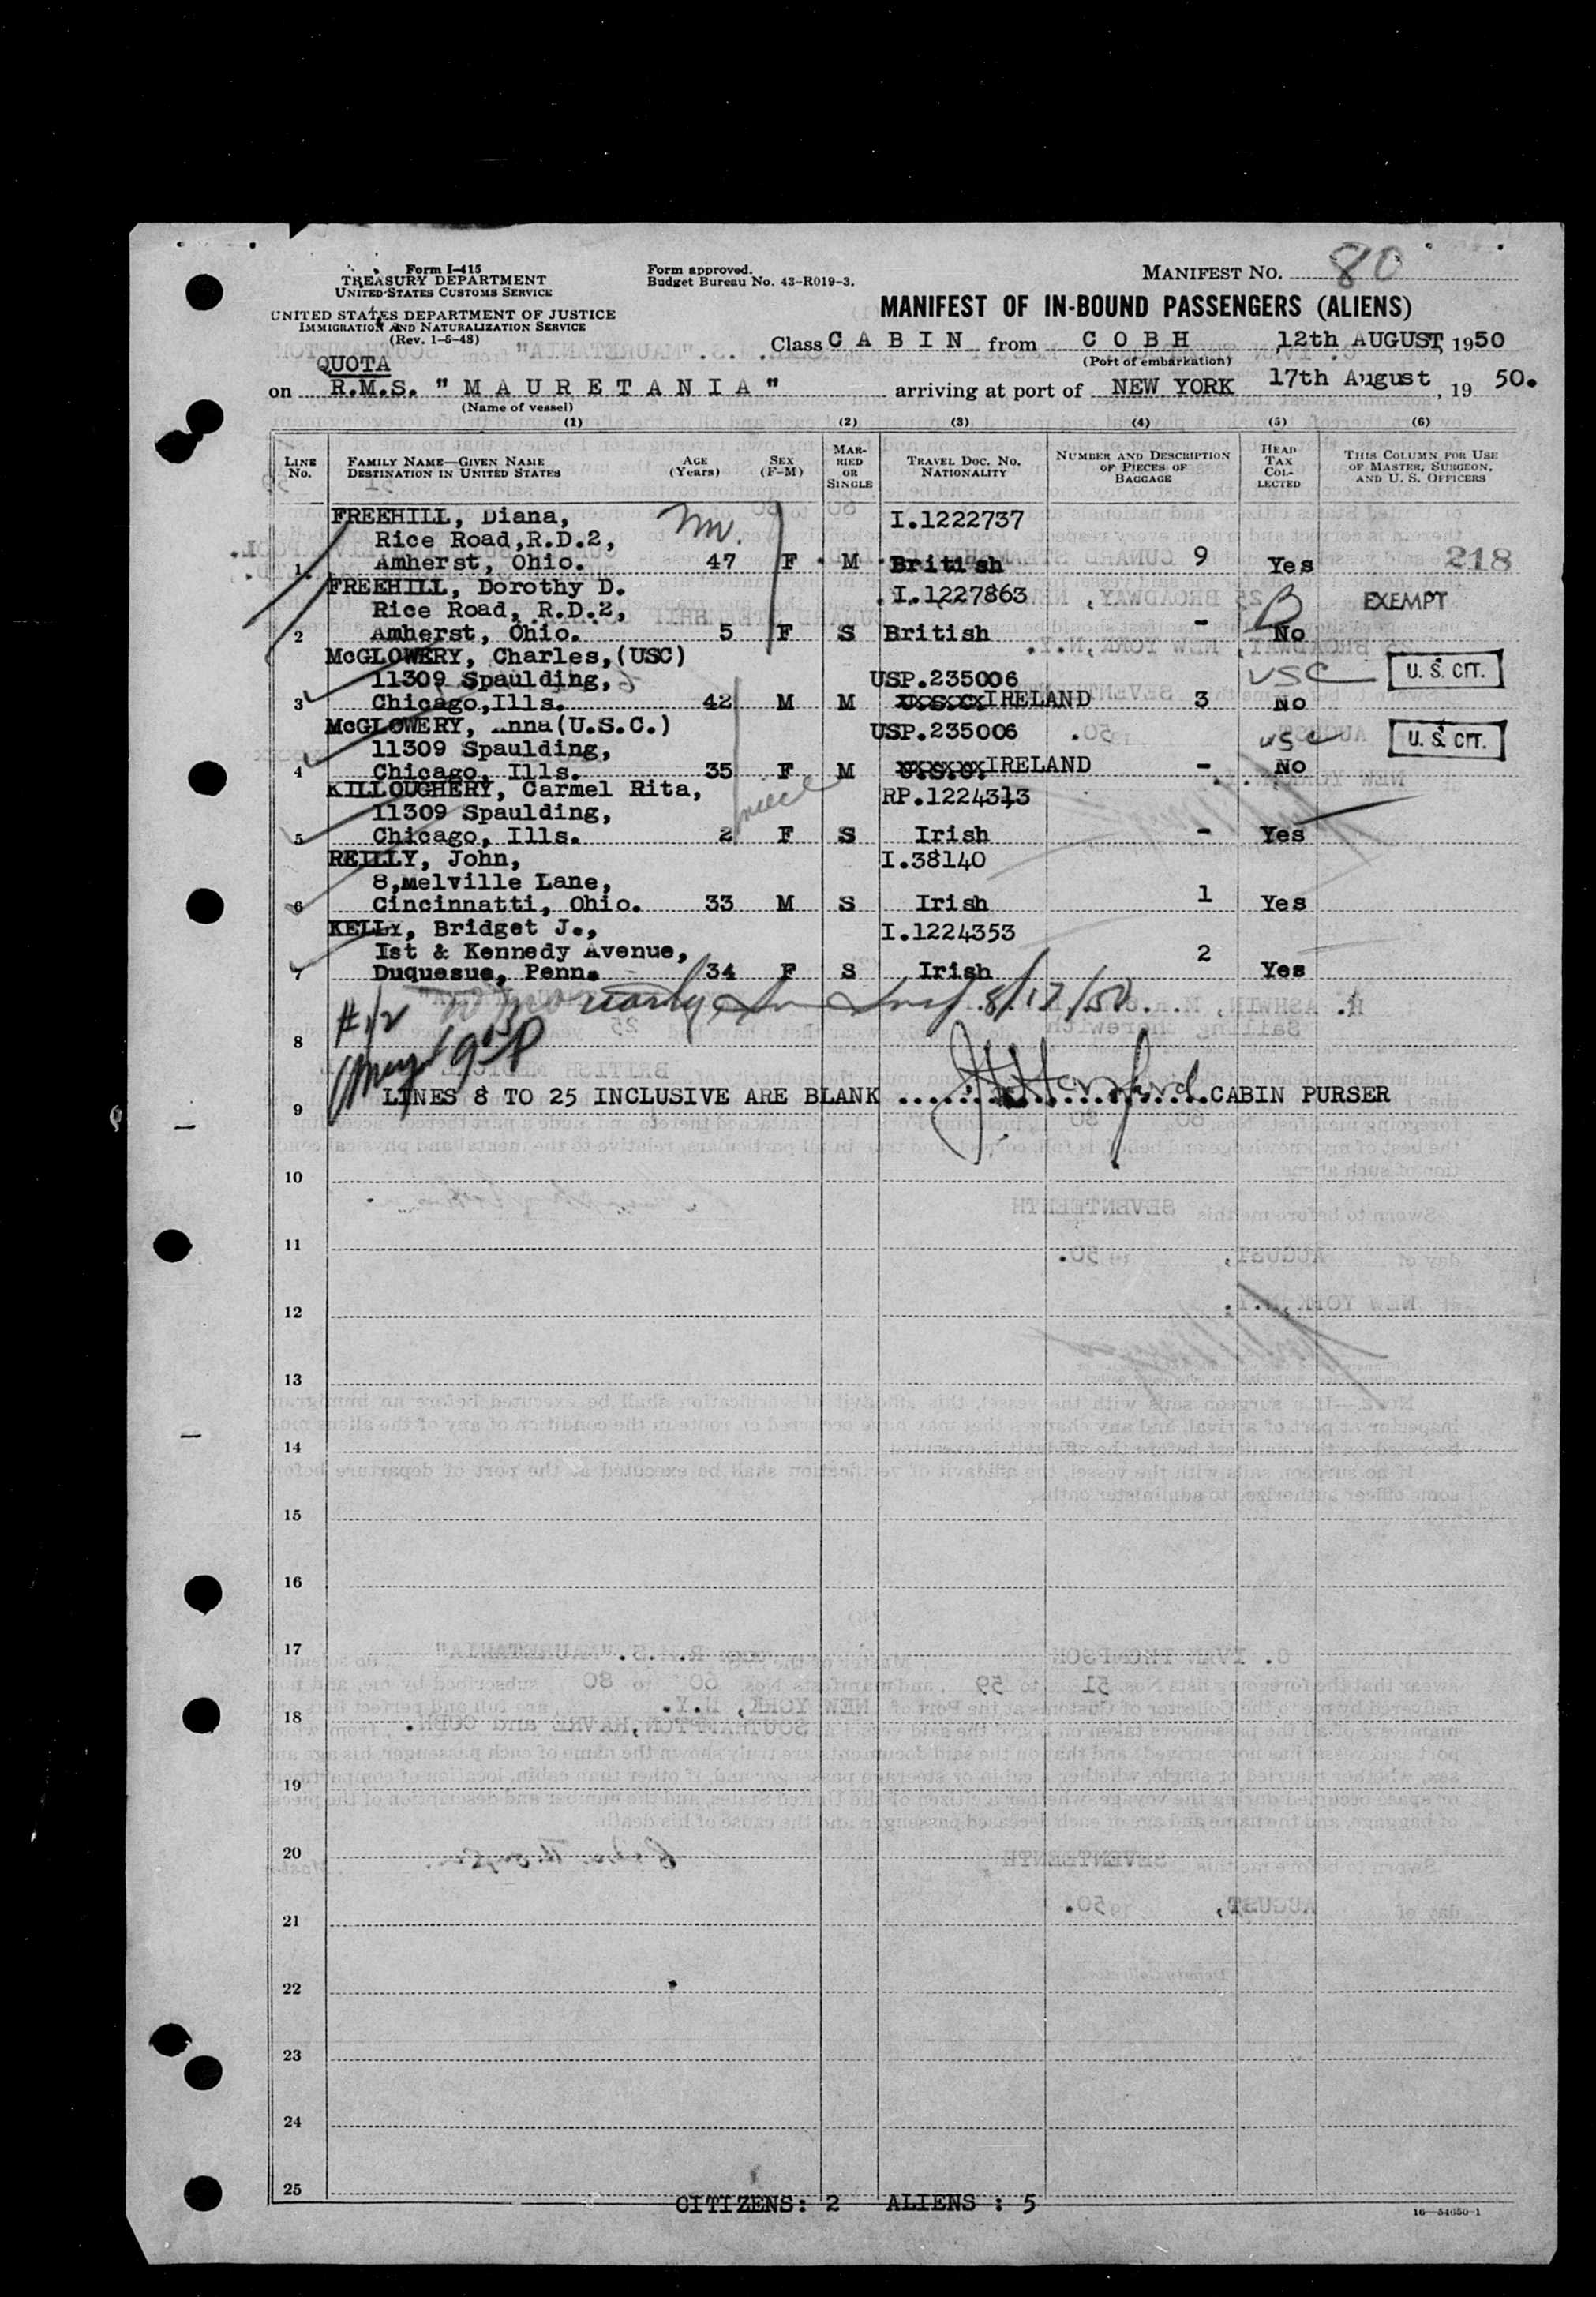 Form I-415
TREASURY DEPARTMENT
UNITED STATES CUSTOMS SERVICE
UNITED STATES DEPARTMENT OF JUSTICE
IMMIGRATION AND NATURALIZATION SERVICE
(Rev. 1-6-48)
Form approved.
Budget Bureau No. 43-R019-3.
MANIFEST NO. 80
MANIFEST OF IN-BOUND PASSENGERS (ALIENS)
Class C A B I N from C O B H 12th AUGUST, 1950
(Port of embarkation)
QUOTA
on R.M.S. "M A U R E T A N I A" arriving at port of NEW YORK 17th August, 19 50.
(Name of vessel)
(1) (2) (3) (4) (5) (6)
LINE NO. FAMILY NAME—GIVEN NAME DESTINATION IN UNITED STATES AGE (Years) SEX (F-M) MARRIED OR SINGLE TRAVEL DOC. NO. NATIONALITY NUMBER AND DESCRIPTION OF PIECES OF BAGGAGE HEAD TAX COLLECTED THIS COLUMN FOR USE OF MASTER, SURGEON, AND U. S. OFFICERS
FREEHILL, Diana, I.1222737
Rice Road,R.D.2,
1 Amherst, Ohio. 47 F M British 9 Yes 218
FREEHILL, Dorothy D. I.1227863
Rice Road, R.D.2, EXEMPT
2 Amherst, Ohio. 5 F S British - No
McGLOWERY, Charles,(USC)
11309 Spaulding, USP.235006 USC U. S. CIT.
3 Chicago,Ills. 42 M M IRELAND 3 No
McGLOWERY, Anna(U.S.C.) USP.235006
11309 Spaulding, USC U. S. CIT.
4 Chicago, Ills. 35 F M IRELAND - No
KILLOUGHERY, Carmel Rita, niece RP.1224313
11309 Spaulding,
5 Chicago, Ills. 2 F S Irish - Yes
REILLY, John, I.38140
8,Melville Lane,
6 Cincinnatti, Ohio. 33 M S Irish 1 Yes
KELLY, Bridget J., I.1224353
Ist & Kennedy Avenue,
7 Duquesue, Penn. 34 F S Irish 2 Yes
8/17/50
#1/2
8
LINES 8 TO 25 INCLUSIVE ARE BLANK CABIN PURSER
9
10
11
12
13
14
15
16
17
18
19
20
21
22
23
24
25
CITIZENS: 2 ALIENS : 5
16—54650-1